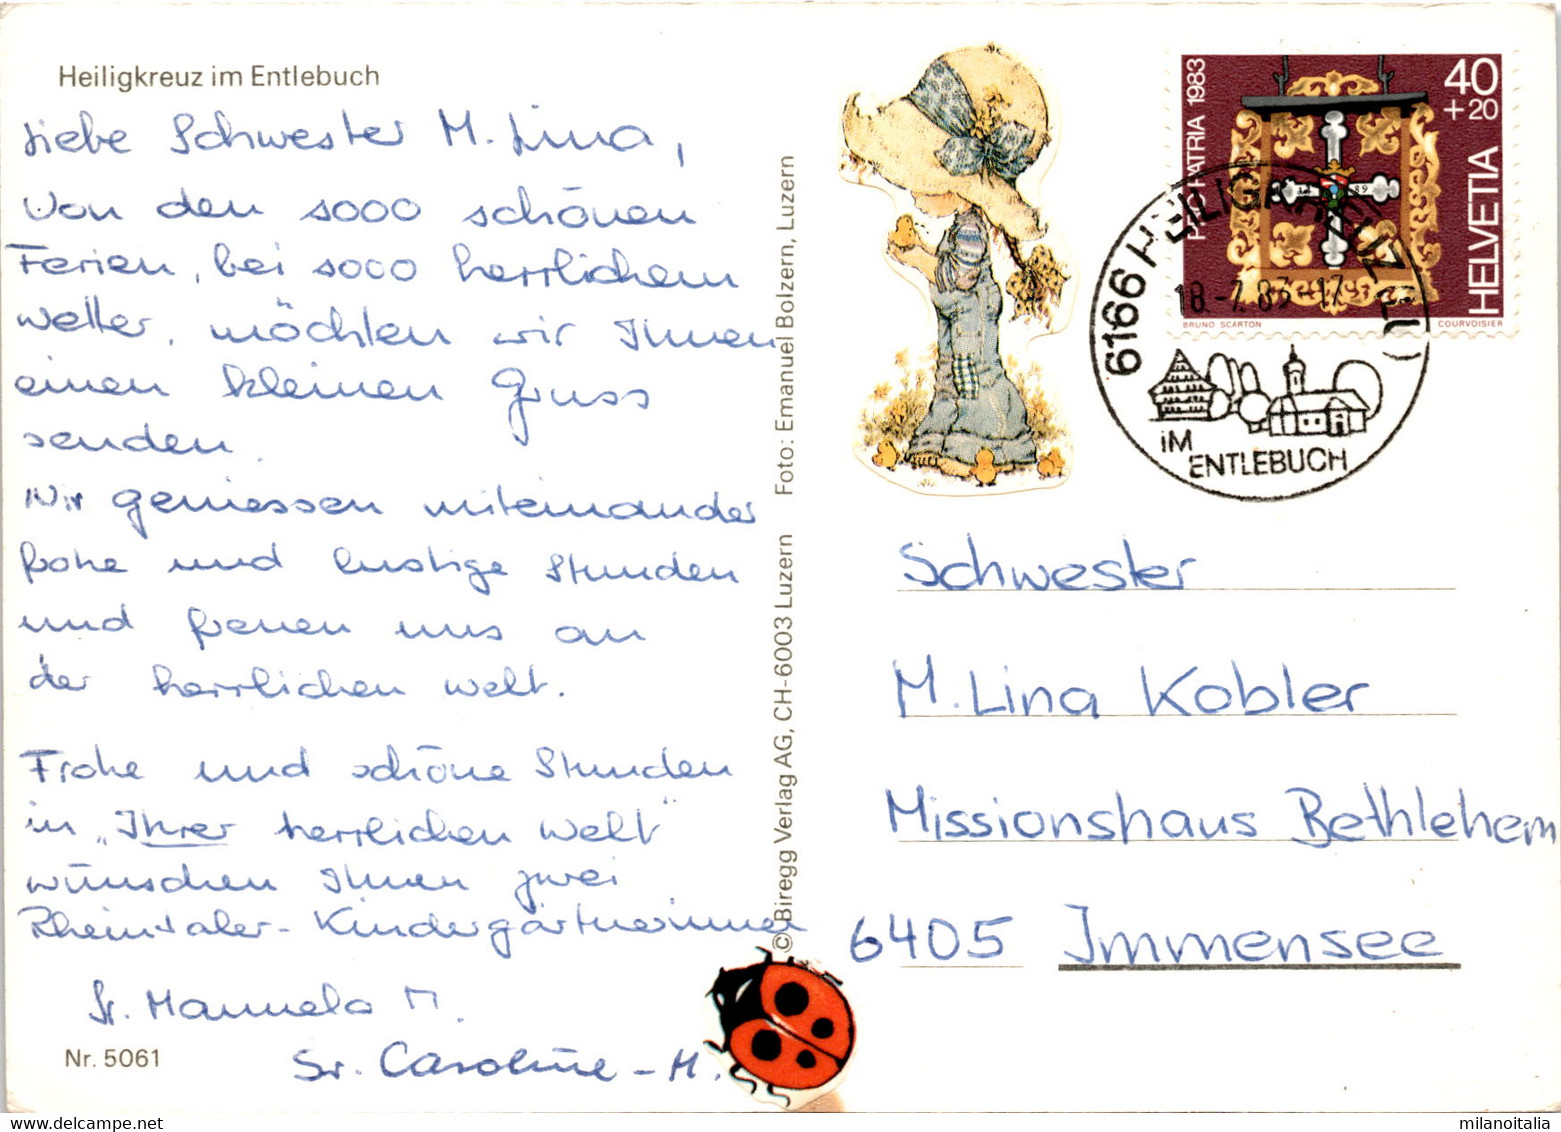 Heiligkreuz im Entlebuch
Liebe Schwester M. Lina,
Von den sooo schönen
Ferien, bei sooo herrlichem
Wetter, möchten wir Ihnen
einen kleinen Gruss
senden.
Wir geniessen miteinander
frohe und lustige Stunden
und freuen uns an
der herrlichen Welt.
Frohe und schöne Stunden
in „Ihrer herrlichen Welt"
wünschen Ihnen zwei
Rheintaler-Kindergärtnerinnen
Sr. Manuela M.
Sr. Caroline-M.
Nr. 5061
© Biregg Verlag AG, CH-6003 Luzern Foto: Emanuel Bolzern, Luzern
PRO PATRIA 1983
40
+20
HELVETIA
BRUNO SCARTON
COURVOISIER
6166 HEILIGKREUZ (LU)
18.-7.83-17
IM
ENTLEBUCH
Schwester
M. Lina Kobler
Missionshaus Bethlehem
6405 Immensee
www.delcampe.net
milanoitalia